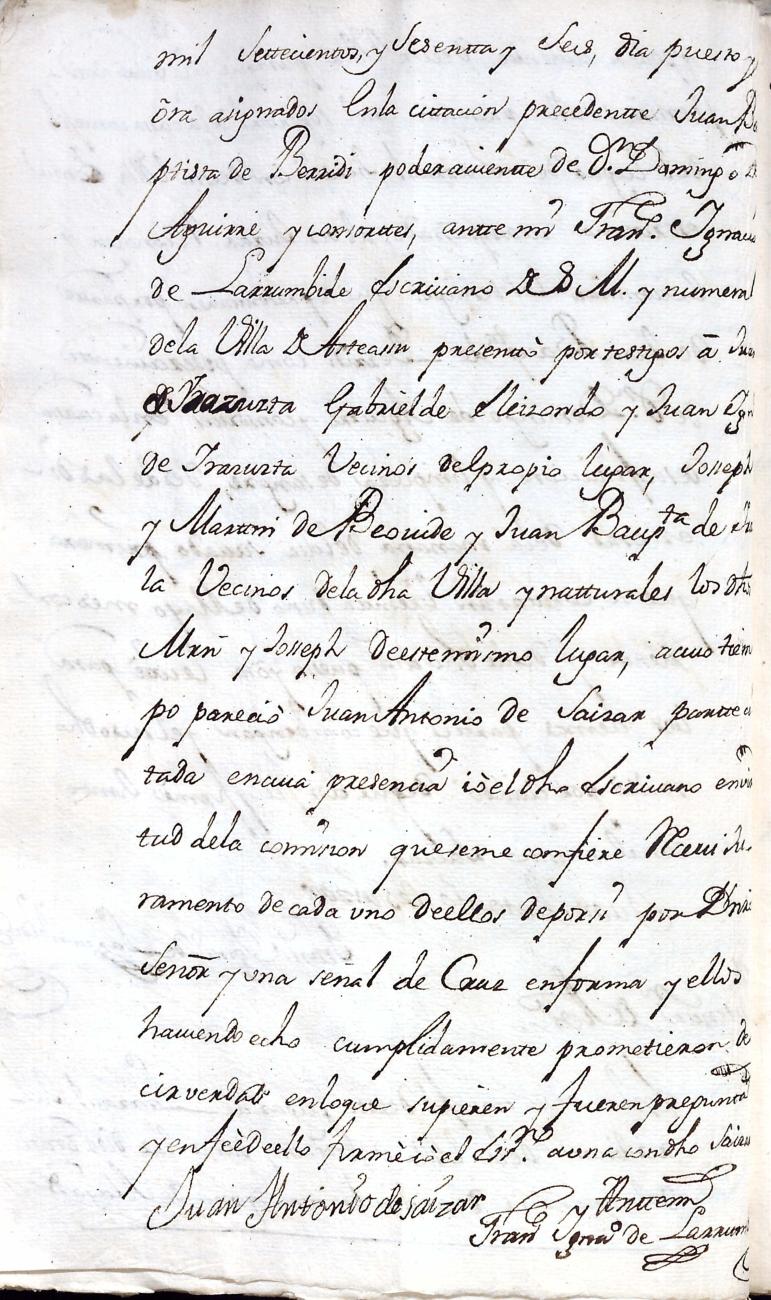 mil Settecientos, y Sesentta y Seis, dia puesto y
óra asignados Enla cittación precedentte Juan Ba
ptista de Berridi poderavientte de Dn. Domingo de
Aguirre y consorttes, antte mi Franco. Ignacio
de Larrumbide Escrivano de S. M. y numeral
dela Villa de Asteasu presenttò por testigos â Juan
de Irazuzta Gabriel de Eleizondo y Juan Ign
de Irazuzta Vecinos del propio lugar, Joseph
y Martin de Beovide y Juan Baupta de
la Vecinos dela dha Villa y natturales los dhos
Mrn y Joseph deestemismo lugar, acuio tiem
po pareciò Juan Antonio de Saizar partte ci
tada encuia presencia iò el dho Escrivano en vir
tud dela comision queseme confiere Recivi Ju
ramento de cada uno deellos deporsi por Dnro
Señor y una señal de Cruz enforma y ellos
haviendo echo cumplidamente prometieron de
cir verdad enloque supieren y fueren pregunta
y enfeèdeello firmè iò el Essno. auna con dho Saizar
Juan Antonio de Saizar Anttemi
Franco Ignao de Larrum